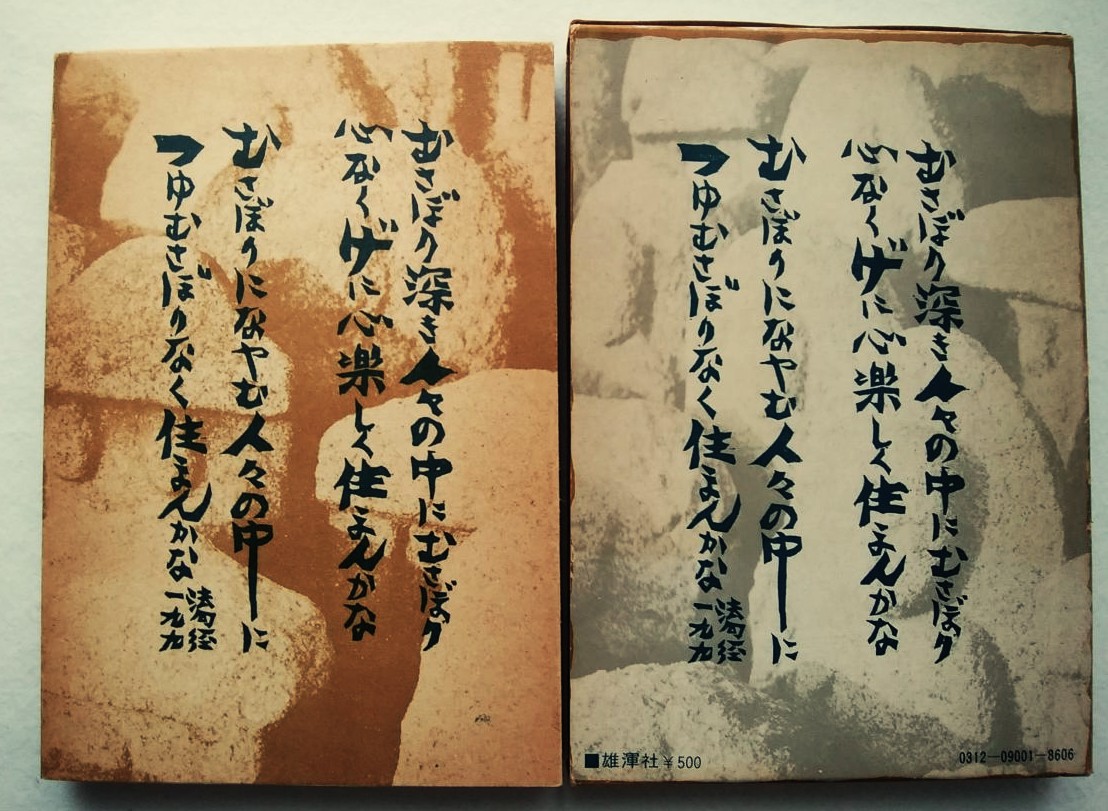 むさぼり深き人々の中にむさぼり
心なくげに心楽しく住まんかな
むさぼりになやむ人々の中に
つゆむさぼりなく住まんかな
法句経
一九九
むさぼり深き人々の中にむさぼり
心なくげに心楽しく住まんかな
むさぼりになやむ人々の中に
つゆむさぼりなく住まんかな
法句経
一九九
■雄渾社 ¥500
0312—09001—8606